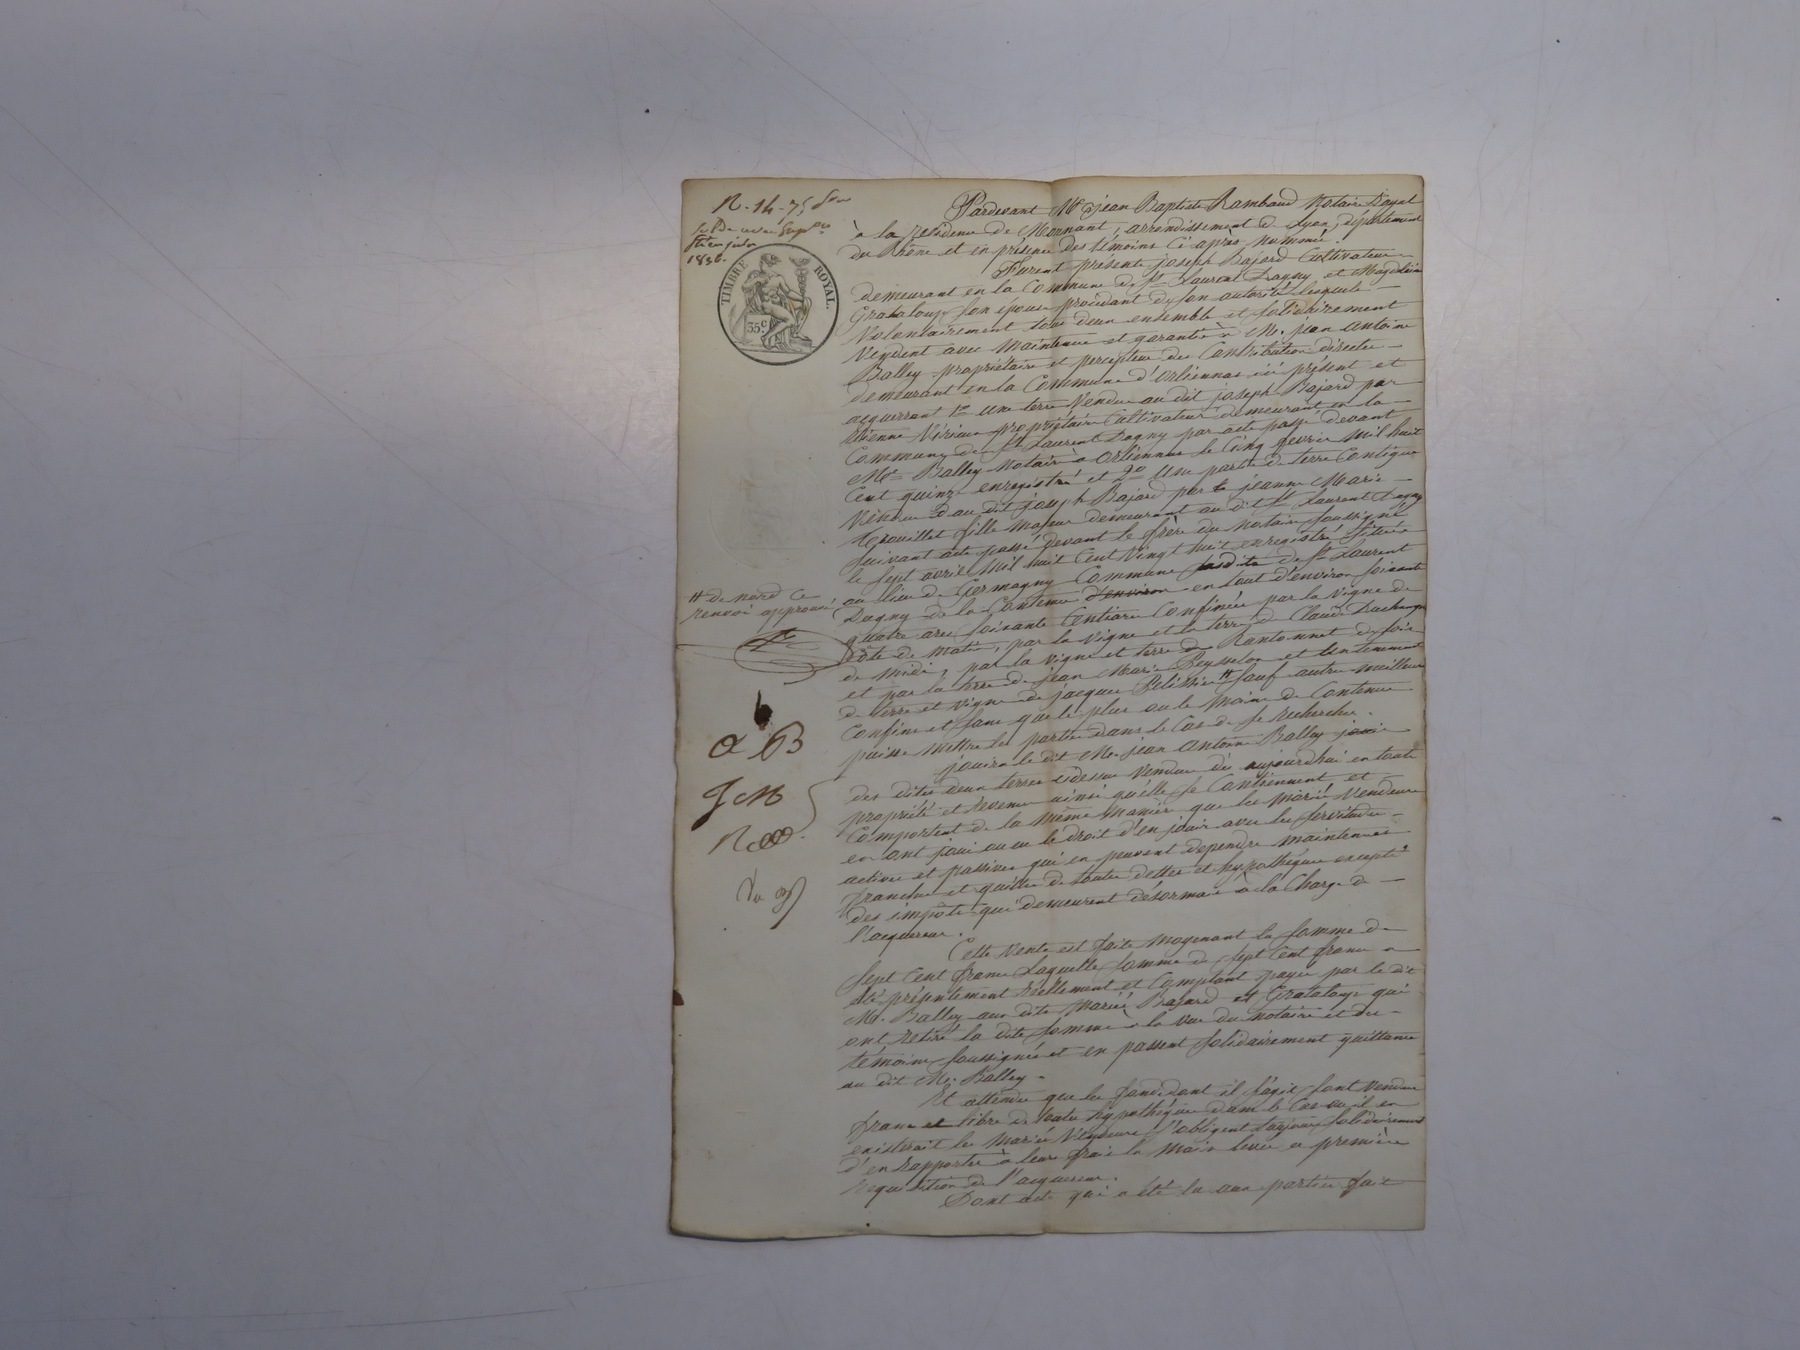 R. 14-75
1836.
TIMBRE ROYAL.
35 c
Pardevant Me jean Baptiste Rambaud Notaire Royal
à la residence de Mornant, arrondissement de Lyon, département
du Rhône et en présence des témoins ci après nommés.
Furent présents joseph Bajard Cultivateur
demeurant en la Commune de St Laurent Dagny et Magdeleine
Grataloup son épouse procédant de son autorité lesquels
Volontairement tous deux ensemble et solidairement
Vendent avec maintenue et garantie à M. jean antoine
Balley propriétaire et percepteur des Contributions directes
demeurant en la Commune d'orliennas ici présent et
acquerrant 1o une terre Vendue au dit joseph Bajard par
Etienne propriétaire Cultivateur demeurant en la
Commune de St Laurent Dagny par acte passé devant
Me Balley Notaire à Orliennas le Cinq fevrier mil huit
Cent quinze enregistré et 2o une partie de terre Contigue
Vendue au dit joseph Bajard par jeanne Marie
fille majeure demeurant au dit St Laurent Dagny
suivant acte passé devant le frère du Notaire soussigné
le sept avril mil huit Cent Vingt huit enregistré située
au lieu de Germagny Commune susdite de St Laurent
Dagny de la Contenue d'environ en tout d'environ soixante
quatre ares soixante Centiares Confinées par la Vigne de
de matin, par la vigne et la terre de Claude
de midi, par la vigne et terre de de soir
et par la terre de jean Marie Peysselon et
de terre et vigne de jacques Pelissier # sauf autres meilleurs
Confins et sans que le plus ou le moins de Contenue
puisse mettre les parties dans le Cas de se rechercher.
# de nord Ce
renvoi approuvé
jouira le dit M. jean antoine Balley
des dites deux terres cidessus Vendues dès aujourdhui en toute
propriété et revenus ainsi qu'elles se Contiennent et
Comportent de la même manière que les mariés Vendeurs
en ont joui ou eu le droit d'en jouir avec les servitudes
actives et passives qui en peuvent dependre maintenues
franches et quittes de toutes dettes et hypothèques excepté
des impôts qui demeurent désormais à la Charge de
l'acquereur.
a B
J M
Cette Vente est faite moyenant la somme de
Sept Cent francs Laquelle somme de sept Cent francs a
été présentement réellement et Comptant payée par le dit
M. Balley aux dits Mariés Bajard et Grataloup qui
ont retiré la dite somme à la vue du Notaire et des
témoins soussignés et en passent solidairement quittance
au dit M. Balley.
Et attendu que les fonds dont il s'agit sont Vendus
francs et libres de toutes hypothèques dans le Cas où il en
existerait les mariés Vendeurs s'obligent toujours solidairement
d'en rapporter à leurs frais la main levée a première
requisition de l'acquereur.
Dont acte qui a été lu aux parties fait